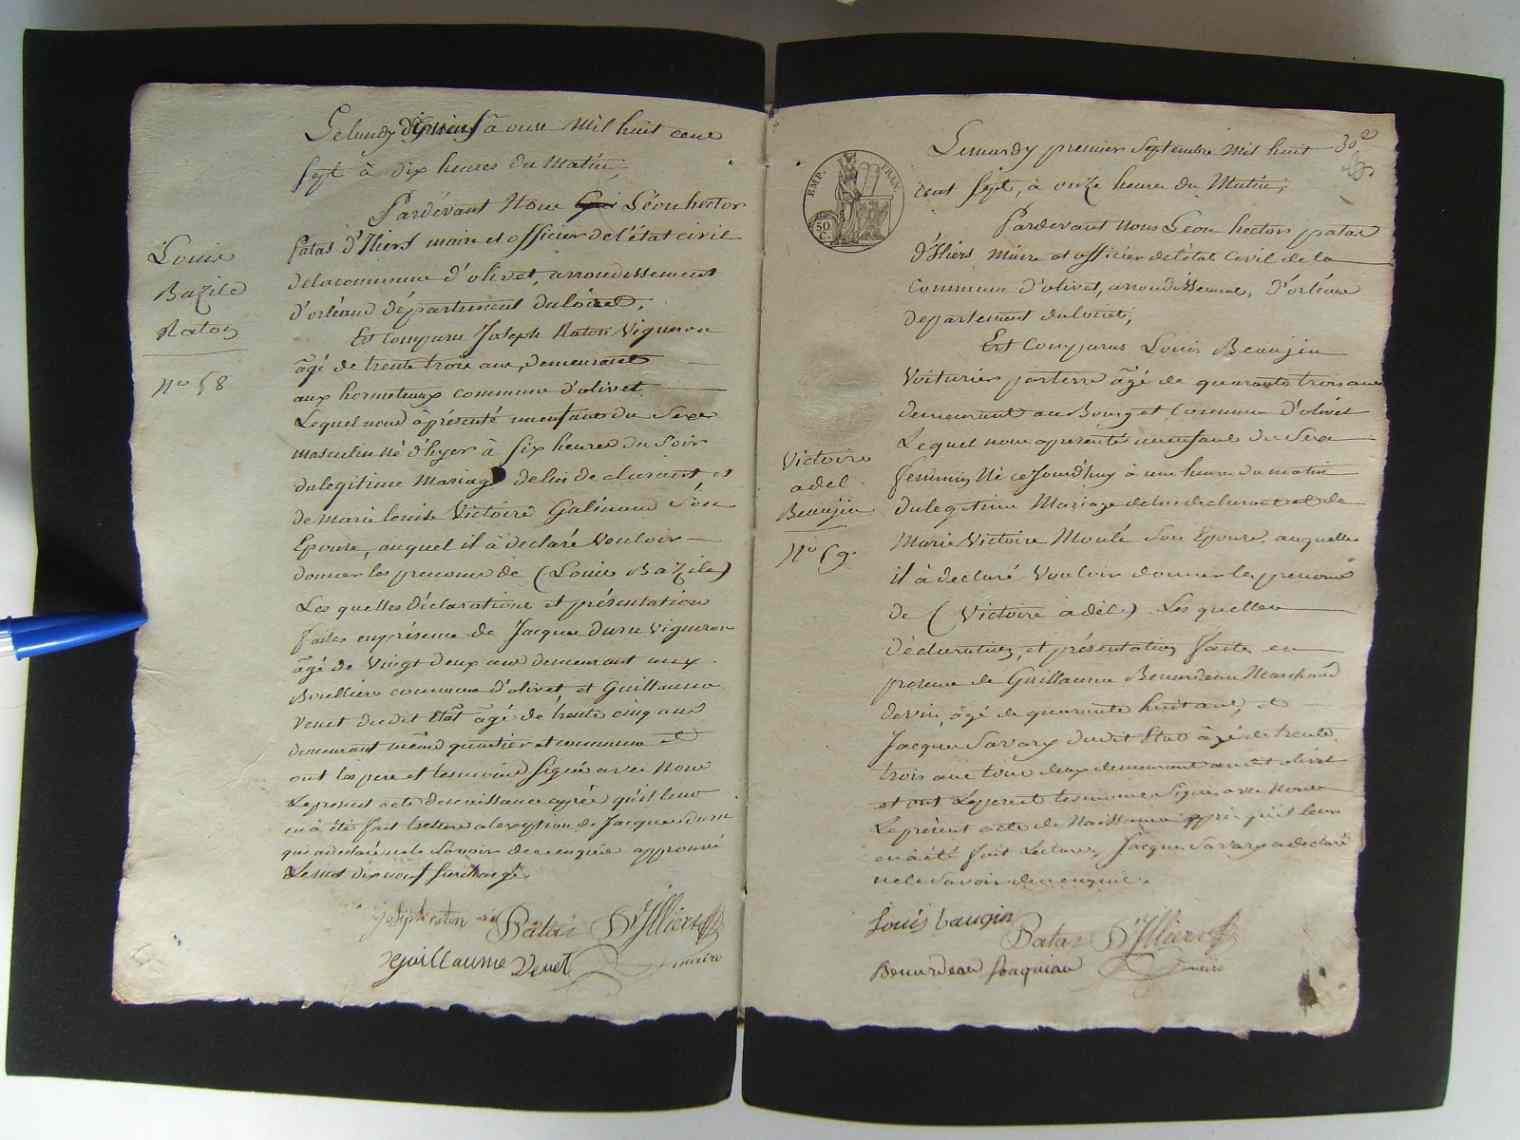 Le lundy dixneuf à oure Mil huit cent
sept à dix heures du Matin;
Pardevant Nous Léon hector
patas d'Iliers maire et officier de l'état civil
delacommune d'olivet, arrondissement
d'orléans département duloiret,
Est Comparu Joseph Raton Vigneron
âgé de trente trois ans, demeurant
aux hormeteaux commune d'olivet
Lequel nous à présenté un enfant du Sexe
masculin Né d'hyer à six heures du Soir
dulegitime Mariage de lui declarant et
de marie louise Victoire Galinand son
Epouse, auquel il à declaré Vouloir
donner les prenoms de (Louis BaZile)
Les quelles déclarations et présentation
faites en présence de Jacques Vigneron
âgé de Vingt deux ans demeurant aux
commune d'olivet et Guillaume
Venet dudit état âgé de trente cinq ans
demeurant même quartier et commune et
ont les pere et temoins signés avec Nous
Le present acte denaissance après qu'il leur
en à été fait lecture alexeption de Jacques
qui a declaré nele Savoir de ce enquis approuvé
Le mot dixneuf surchargé.
Louis
BaZile
Raton
Nº 58
joseph raton Patas D'Illiers
guillaume Venet maire
30e
EMP. FRAN.
50 C.
Lemardy premier Septembre Mil huit
cent sept, à onze heures du Matin;
Pardevant nous Léon hector patas
d'Iliers Maire et officier de létat Civil de la
Commune d'olivet, arrondissement, d'orléans
departement duloiret;
Est Comparus Louis Beaujin
Voiturier parterre âgé de quarante trois ans
demeurant au Bourg et Commune d'olivet
Lequel nous à présenté un enfant du Sexe
feminin Né cejourd'huy à une heure du matin
dulegitime Mariage delui declarant et de
Marie Victoire Moulé Son Epouse, auquelle
il à declaré Vouloir donner les prenoms
de (Victoire adel) Les quelles
déclarations, et présentation faite en
presence de Guillaume Beaurdeau Marchand
devin, âgé de quarante huit ans, et
Jacques Savary dudit Etat âgé de trente
trois ans tous deux demeurant audit olivet
et ont Lepere et temoins Signés avec Nous
Le présent acte de Naissance après qu'il leur
en à été fait Lecture, Jacques Savary a declaré
nele Savoir de ce enquis.
Victoire
adel
Beaujin
Nº 59.
Louis baugin Patas D'Illiers
Beaurdeau maire